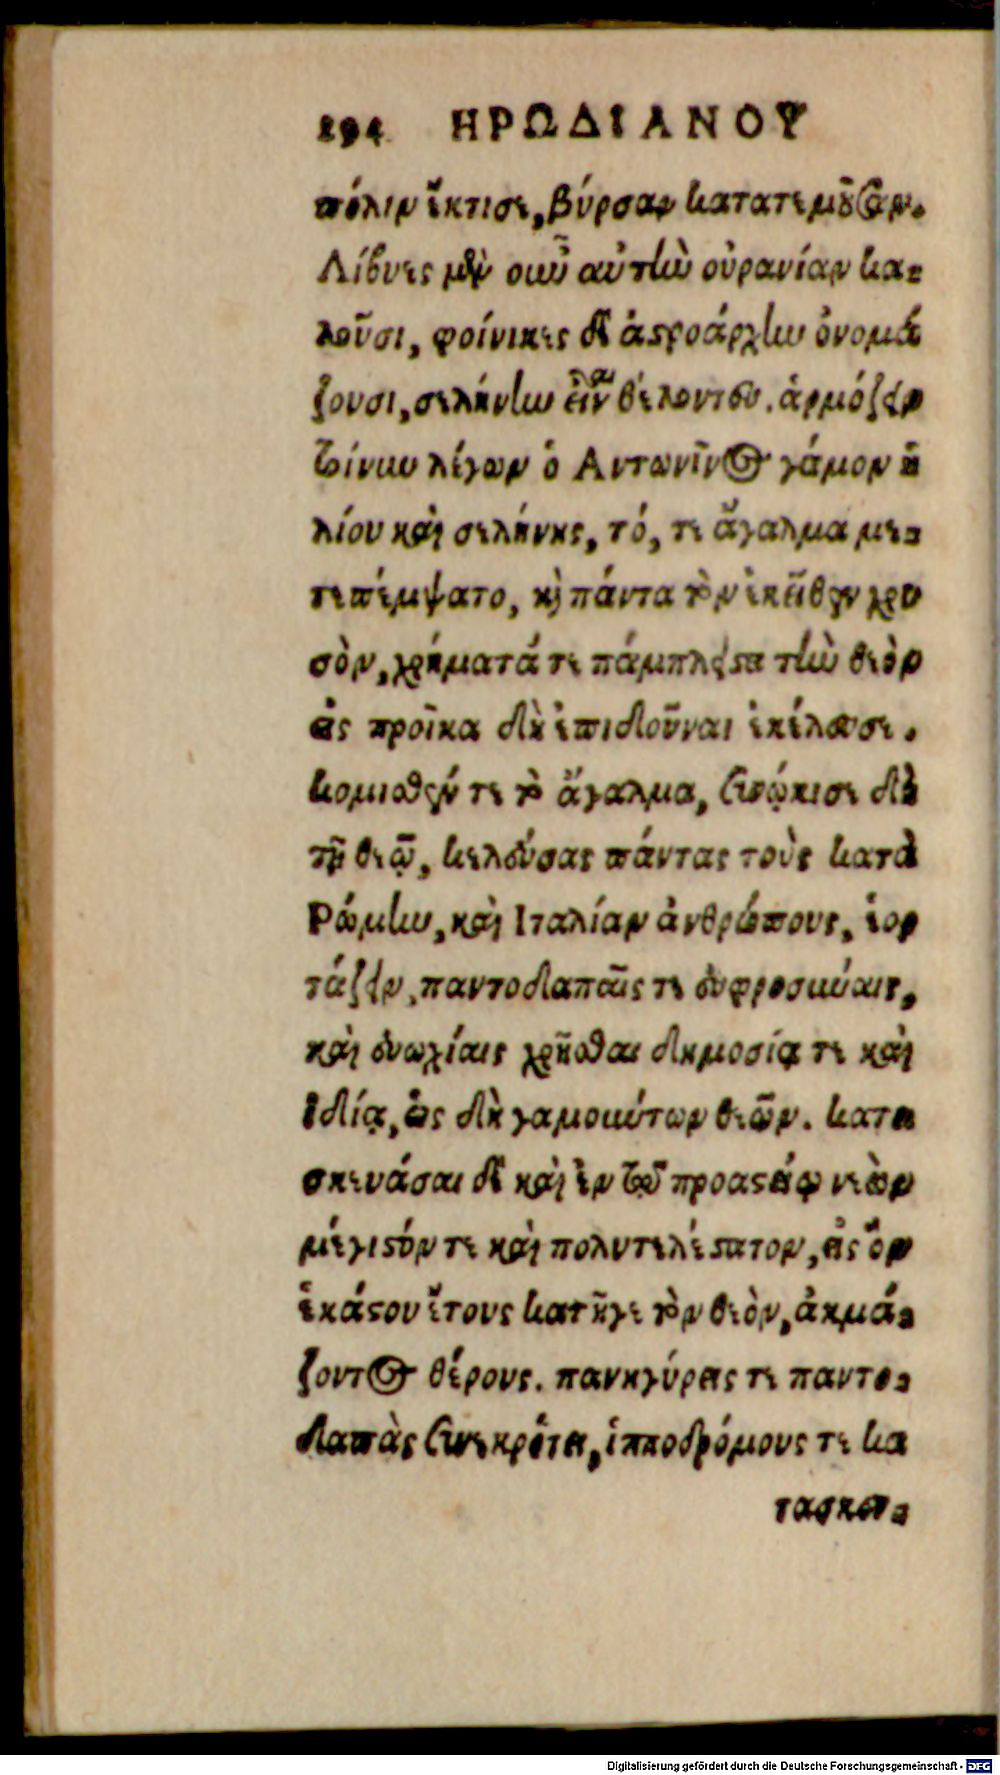 294 ΗΡΩΔΙΑΝΟΥ
πόλιν ἔκτισε, βύρσαν κατατεμοῦσαν.
Λίβυες μὲν οὖν αὐτὴν οὐρανίαν κα-
λοῦσι, φοίνικες δὲ ἀστροάρχην ὀνομά
ζουσι, σελήνην εἶναι θέλοντες. ἁρμόζειν
τοίνυν λέγων ὁ Αντωνῖνος γάμον ἡ
λίου καὶ σελήνης, τό, τε ἄγαλμα με-
τεπέμψατο, καὶ πάντα τὸν ἐκεῖθεν χρυ
σὸν, χρήματά τε πάμπλειστα τὴν θεὸν
εἰς προῖκα δὴ ἐπιδοῦναι ἐκέλευσε.
κομισθέν τε τὸ ἄγαλμα, συνῴκισε δὴ
τῷ θεῷ, κελεύσας πάντας τοὺς κατὰ
Ρώμην, καὶ Ιταλίαν ἀνθρώπους, ἑορ
τάζειν, παντοδαπαῖς τε εὐφροσύναις,
καὶ εὐωχίαις χρῆσθαι δημοσίᾳ τε καὶ
ἰδίᾳ, ὡς δὴ γαμούντων θεῶν. κατε
σκευάσαι δὲ καὶ ἐν τῷ προαστείῳ νεὼν
μέγιστόν τε καὶ πολυτελέστατον, εἰς ὃν
ἑκάστου ἔτους κατῆγε τὸν θεὸν, ἀκμά-
ζοντος θέρους. πανηγύρεις τε παντο-
δαπὰς συνεκρότει, ἱπποδρόμους τε κα
τασκευ-
Digitalisierung gefördert durch die Deutsche Forschungsgemeinschaft - DFG